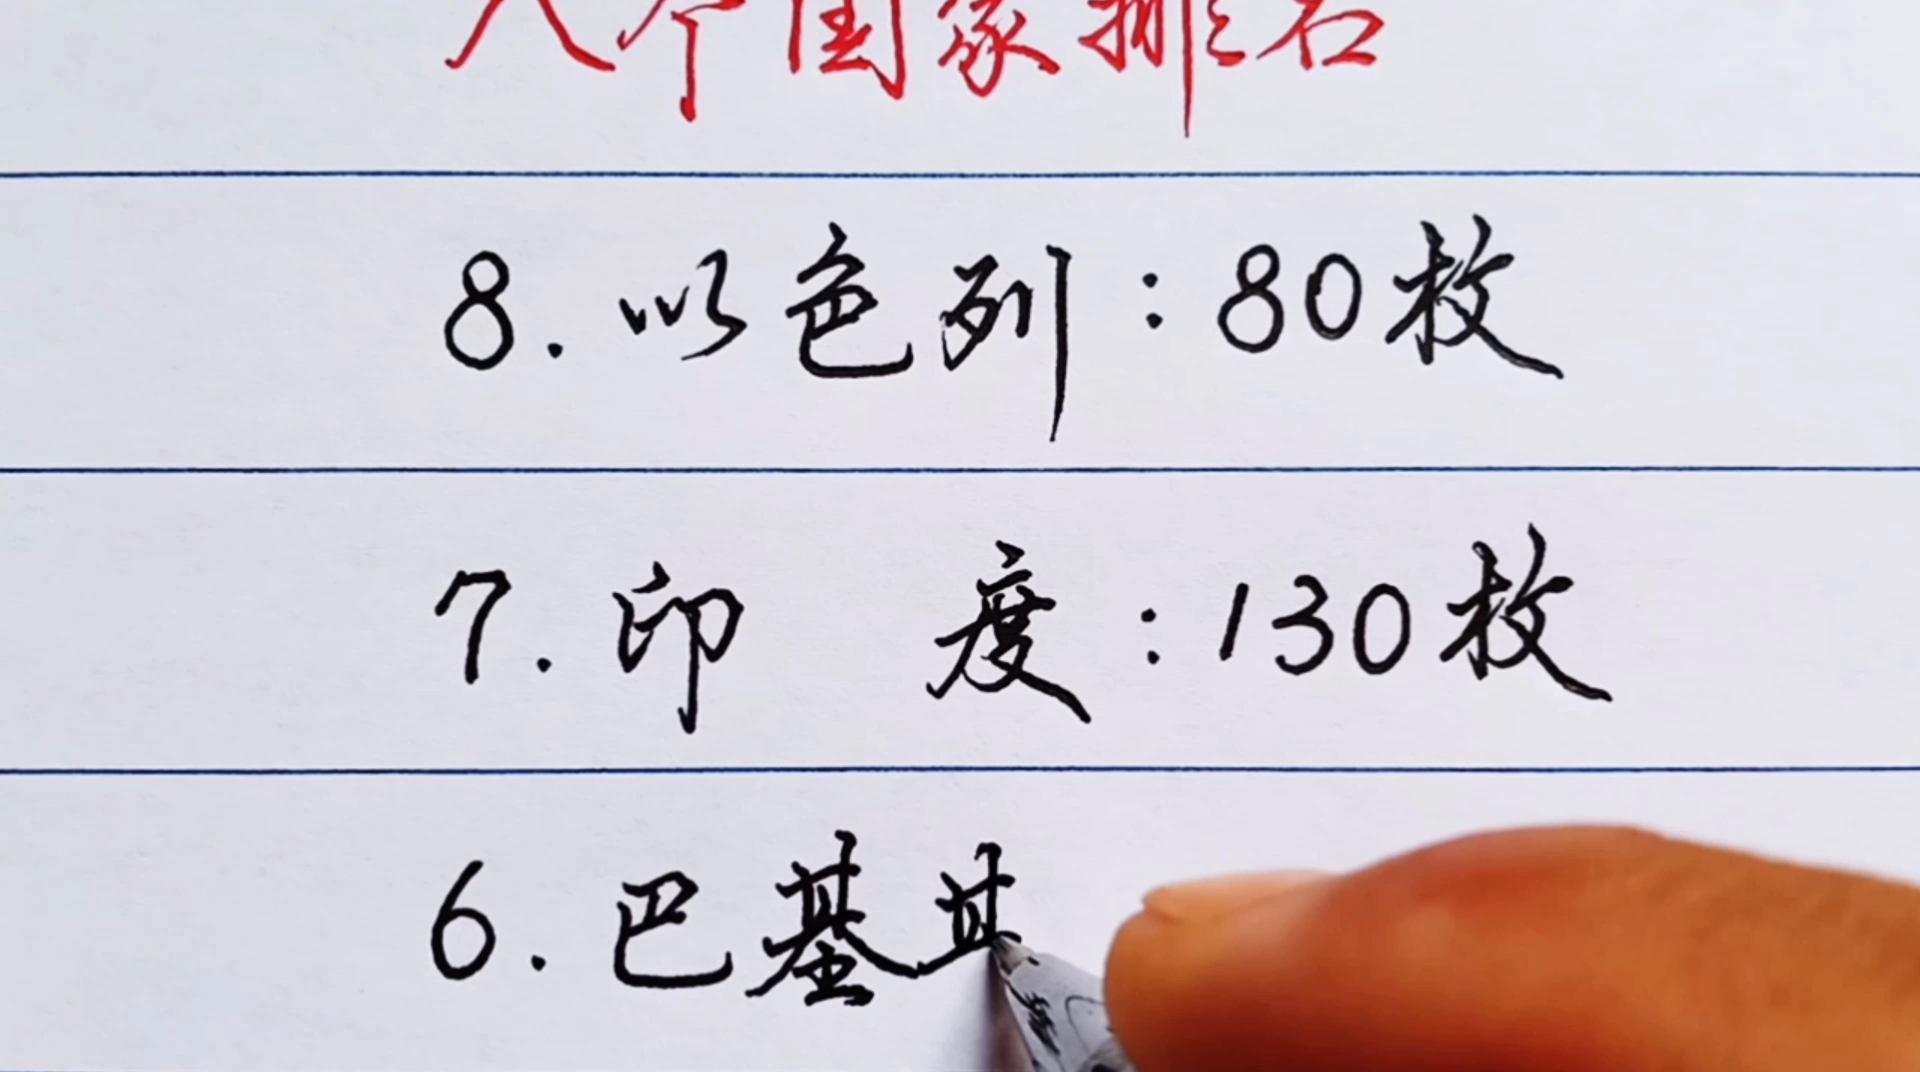 八个国家排名
8.以色列:80枚
7.印度:130枚
6.巴基